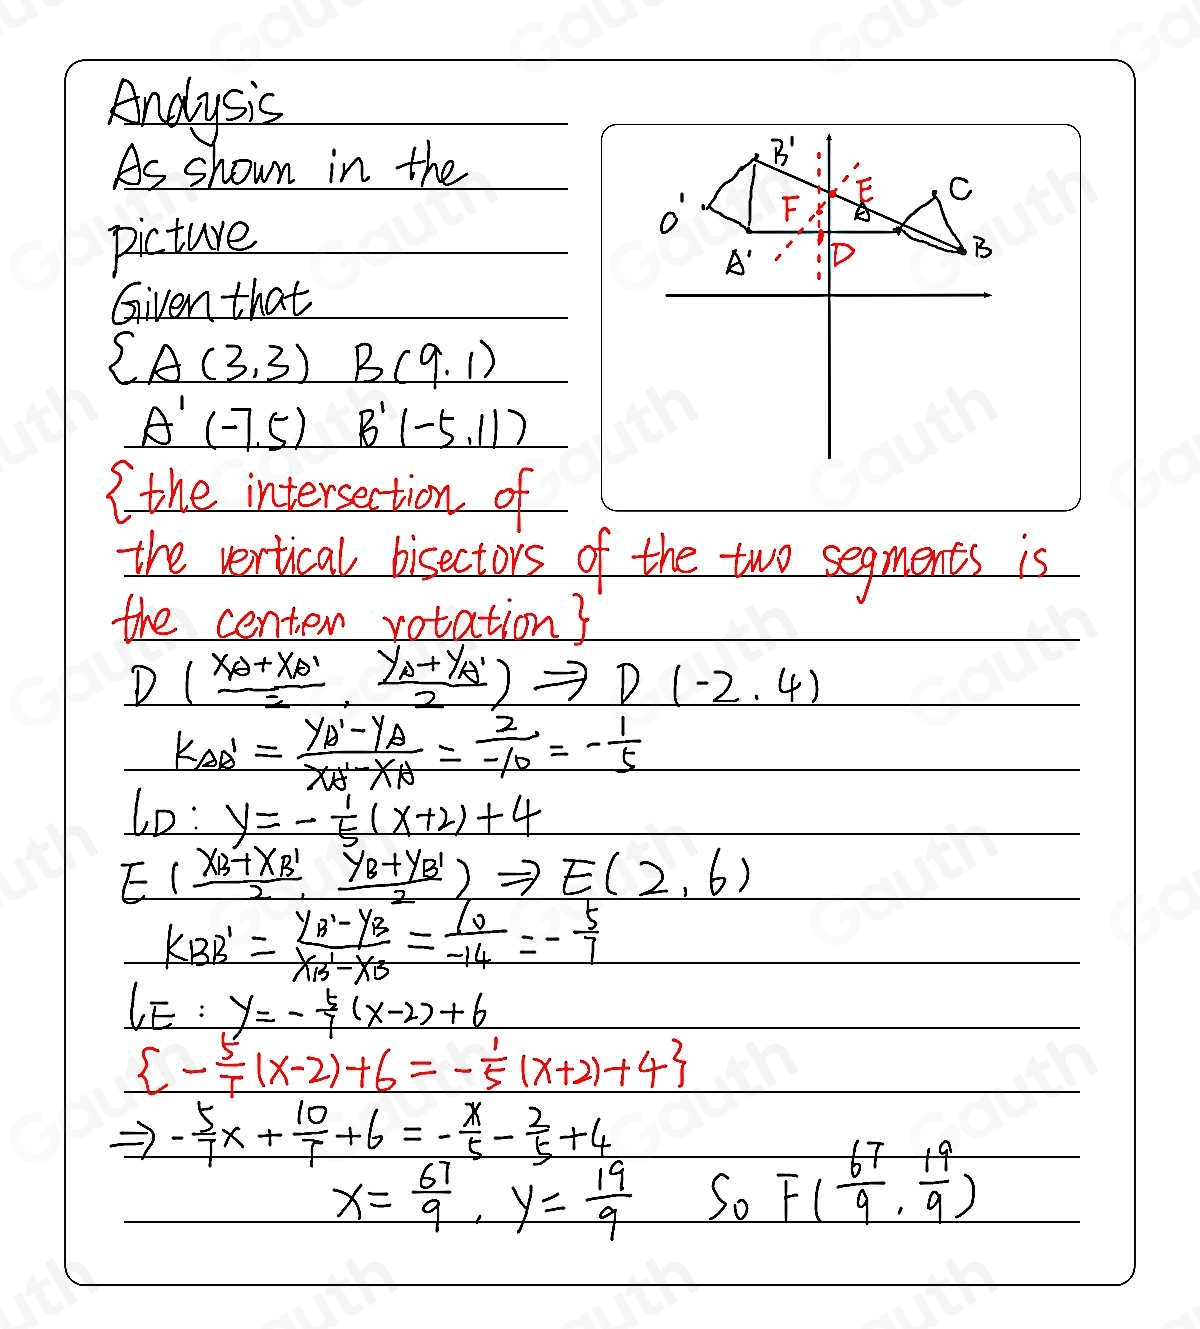 Analysis
As shown in the
picture
Given that
{A (3,3) B(9.1)
A' (-7.5) B'(-5.11)
{the intersection of
the vertical bisectors of the two segments is
the center rotation}
D ( (x_A+x_A')/2 , (y_A+y_A')/2 ) ⇒ D (-2.4)
K_AA' = (y_A'-y_A)/(x_A'-x_A) = 2/-10 = -1/5
l_D: y=-1/5(x+2)+4
E ( (x_B+x_B')/2 , (y_B+y_B')/2 ) ⇒ E(2,6)
K_BB' = (y_B'-y_B)/(x_B'-x_B) = 10/-14 = -5/7
l_E: y=-5/7(x-2)+6
{-5/7(x-2)+6=-1/5(x+2)+4}
⇒ -5/7x+10/7+6=-x/5-2/5+4
x=67/9, y=19/9 So F(67/9,19/9)
B'
E
C
O'
F
A
A'
D
B
Gauth